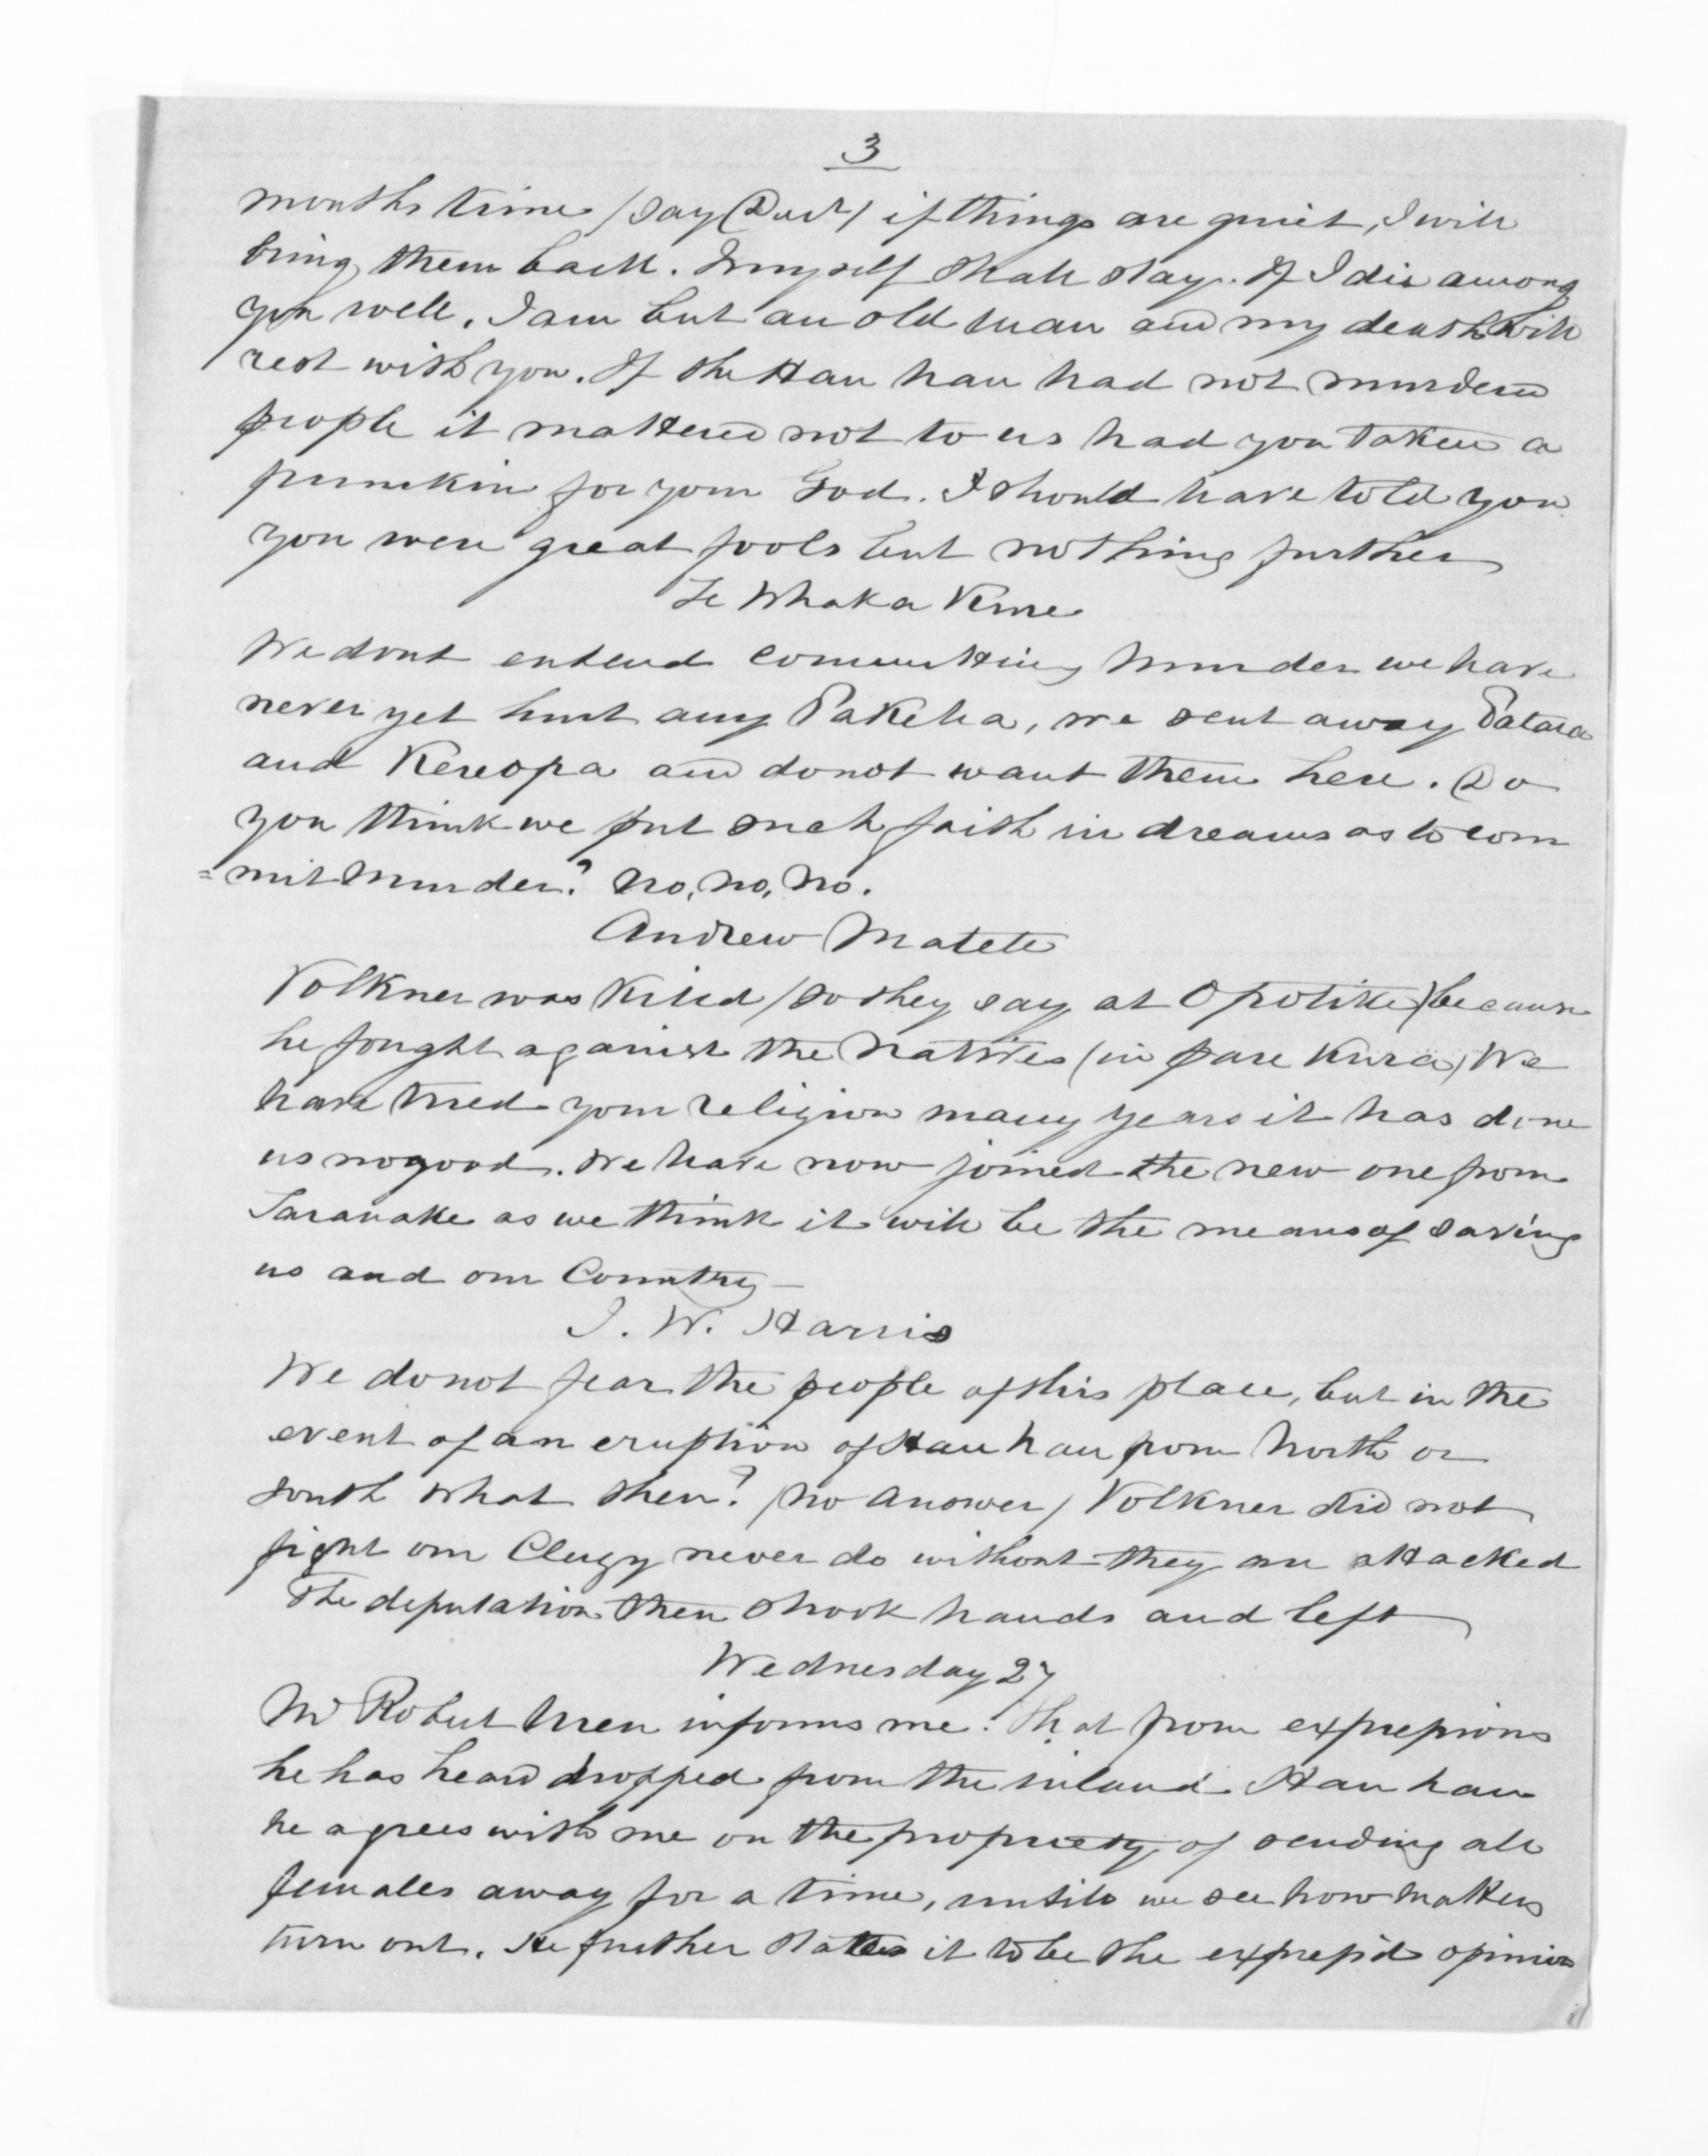 3
months time (say Decr) if things are quiet, I will
bring them back. I myself shall stay. If I die among
you well. I am but an old man and my death will
rest with you. If the Hau hau had not murdered
people it mattered not to us had you taken a
pumkin for your God. I should have told you
you were great fools but nothing further
Te Whaka
We dont entend committing murder we have
never yet hurt any Pakeha, we sent away Patara
and Kereopa and do not want them here. Do
you think we put such faith in dreams as to com
=mit murder? No, No, No.
Andrew Matete
Volkner was killed (so they say at Opotiki) because
he fought against the Natives (in pare kura) We
have tried your religion many years it has done
us no good. We have now joined the new one from
Taranake as we think it will be the means of saving
us and our Country —
J. W. Harris
We do not fear the people of this place, but in the
event of an eruption of Hau hau from North or
South what then? (No Answer) Volkner did not
fight our Clergy never do without they are attacked
The deputation then shook hands and left
Wednesday 27
Mr Robert informs me. That from expressions
he has heard dropped from the inland Hau hau
he agrees with me on the propriety of sending all
females away for a time, untill we see how matters
turn out. He further states it to be the express'd opinion